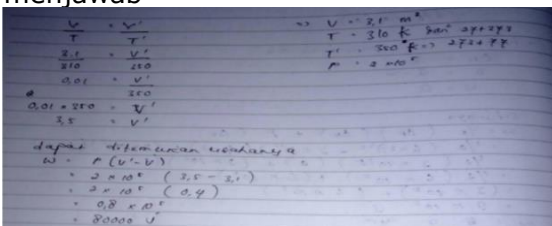 menjawab
V/T = V'/T'
3,1/310 = V'/350
0,01 = V'/350
0,01 × 350 = V'
3,5 = V'
=> V = 3,1 m³
T = 310 K
T' = 350 K => 273 + 77
P = 2 × 10⁵
dapat ditemukan usahanya
W = P (V' - V)
= 2 × 10⁵ (3,5 - 3,1)
= 2 × 10⁵ (0,4)
= 0,8 × 10⁵
= 80000 J